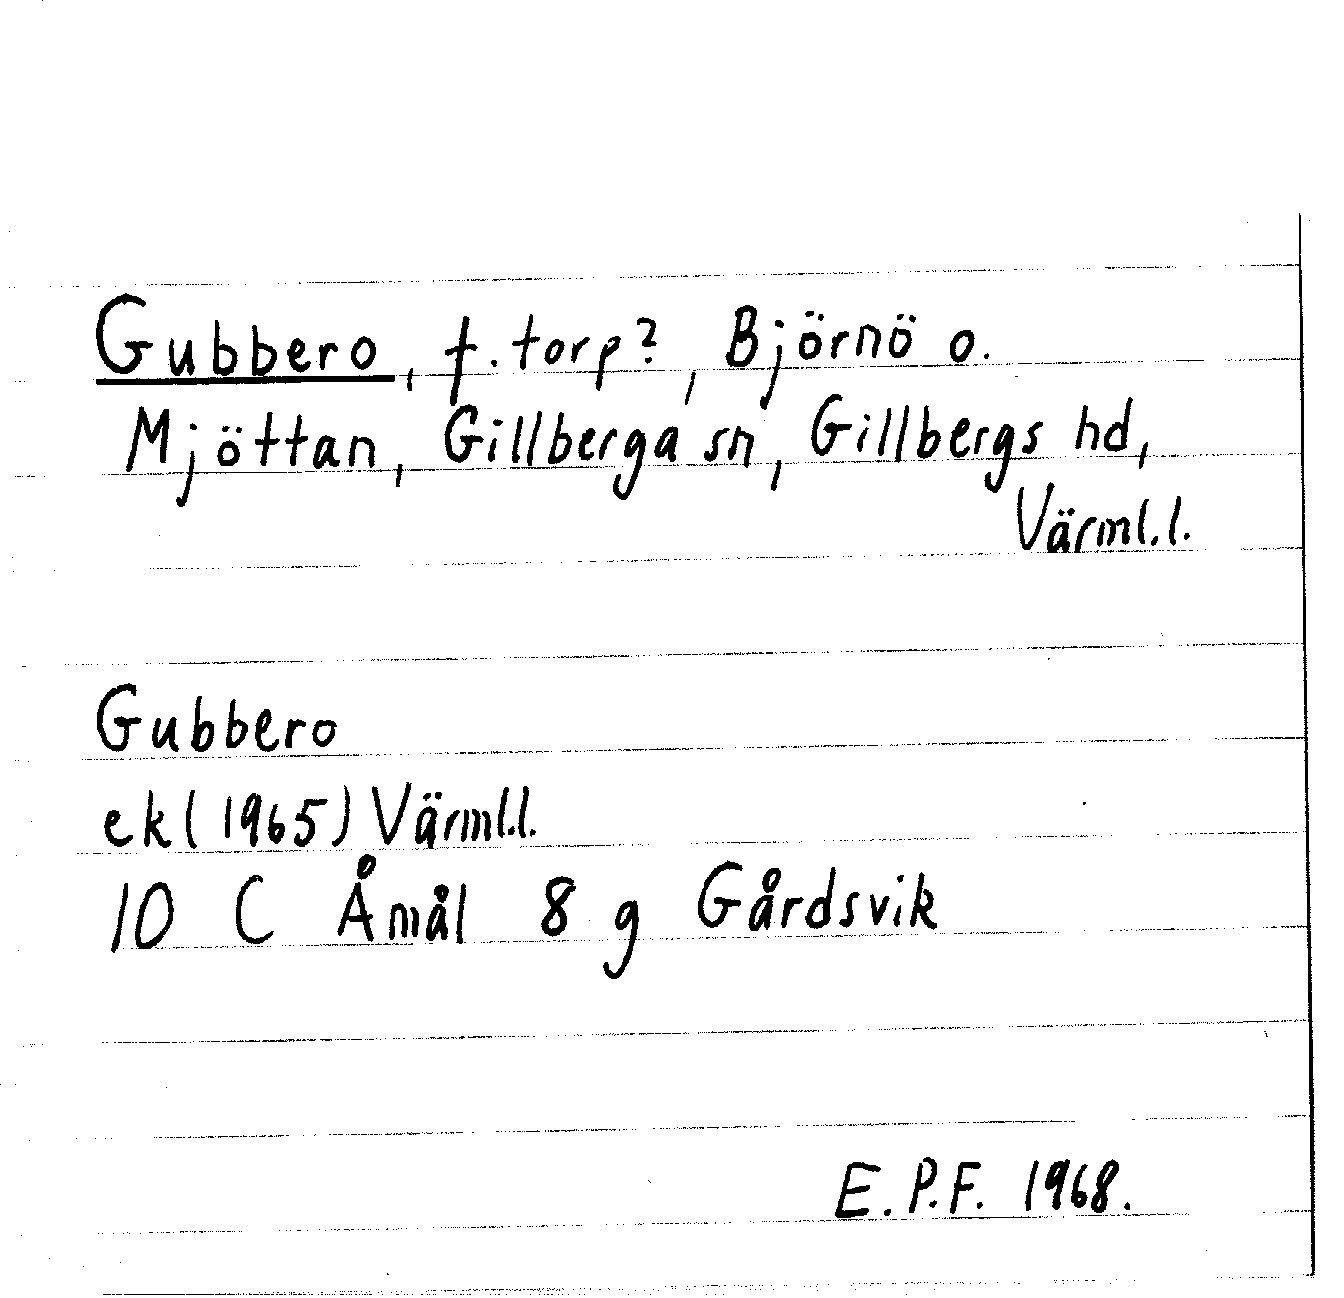 Gubbero, f. torp?, Björnö o.
Mjöttan, Gillberga sn, Gillbergs hd,
Värml.l.
Gubbero
ek (1965) Värml.l.
10 C Åmål 8 g Gårdsvik
E.P.F. 1968.